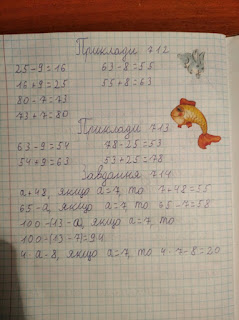 Приклади 712
25-9=16 63-8=55
16+9=25 55+8=63
80-7=73
73+7=80
Приклади 713
63-9=54 78-25=53
54+9=63 53+25=78
Завдання 714
а+48, якщо а=7, то 7+48=55
65-а, якщо а=7, то 65-7=58
100-(13-а), якщо а=7, то
100-(13-7)=94
4·а-8, якщо а=7, то 4·7-8=20